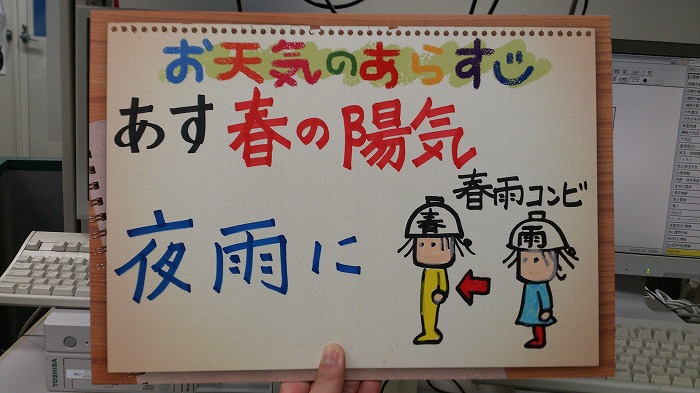 お天気のあらすじ
あす春の陽気
春雨コンビ
春
雨
夜雨に
TOSHIBA